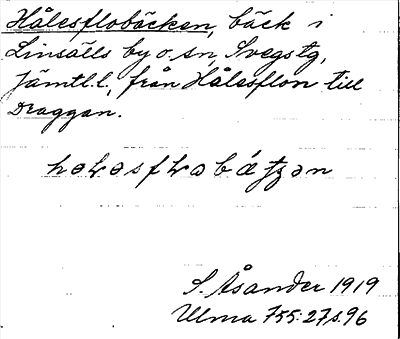 Hålesflobäcken, bäck i
Linsälls by o. sn, Svegs tg,
Jämtl. l., från Hålesflon till
Draggan.
S. Åsander 1919
Ulma 755:27 s. 96